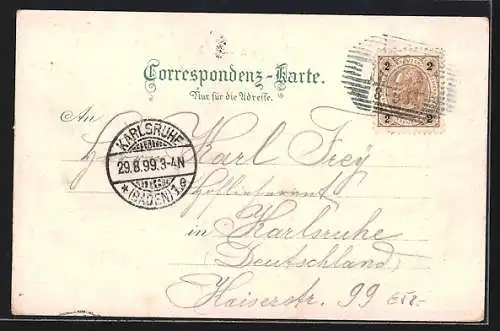 Correspondenz-Karte.
Nur für die Adresse.
An
H. Karl Frey
Hoflieferant
in Karlsruhe
(Deutschland)
Kaiserstr. 99
KARLSRUHE
29.8.99.3-4N
(BADEN) 1
2 2
2 2